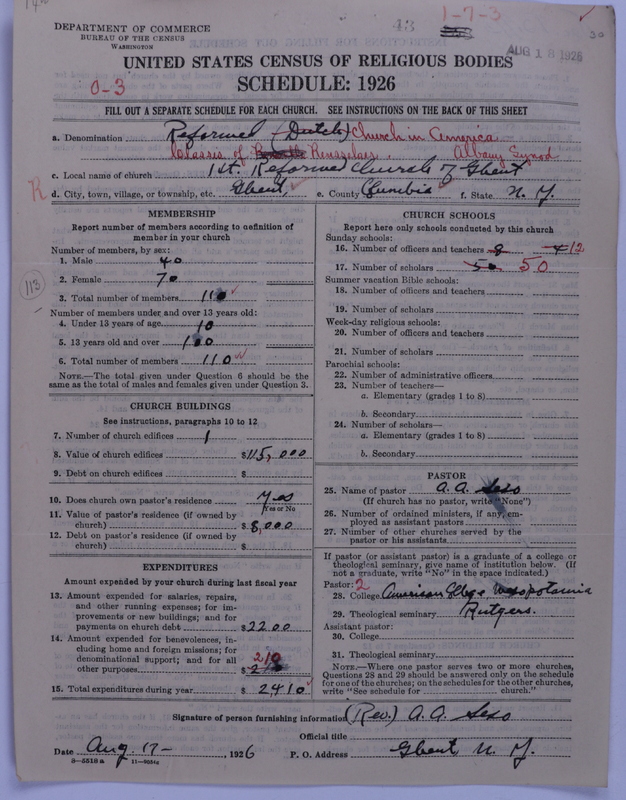 DEPARTMENT OF COMMERCE
BUREAU OF THE CENSUS
WASHINGTON
43
1-7-3
AUG 18 1926
30
UNITED STATES CENSUS OF RELIGIOUS BODIES
SCHEDULE: 1926
0-3
FILL OUT A SEPARATE SCHEDULE FOR EACH CHURCH. SEE INSTRUCTIONS ON THE BACK OF THIS SHEET
a. Denomination Reformed (Dutch) Church in America
Classis of Rensselaer, Albany Synod
c. Local name of church 1st. Reformed Church of Ghent
R
d. City, town, village, or township, etc. Ghent, e. County Columbia f. State N. Y.
MEMBERSHIP
Report number of members according to definition of
member in your church
Number of members, by sex:
1. Male 40
2. Female 70
113
3. Total number of members 110
Number of members under and over 13 years old:
4. Under 13 years of age 10
5. 13 years old and over 100
6. Total number of members 110
NOTE.—The total given under Question 6 should be the
same as the total of males and females given under Question 3.
CHURCH BUILDINGS
See instructions, paragraphs 10 to 12
7. Number of church edifices 1
8. Value of church edifices $115,000
9. Debt on church edifices $
10. Does church own pastor's residence Yes
Yes or No
11. Value of pastor's residence (if owned by
church) $8,000
12. Debt on pastor's residence (if owned by
church) $
EXPENDITURES
Amount expended by your church during last fiscal year
13. Amount expended for salaries, repairs,
and other running expenses; for im-
provements or new buildings; and for
payments on church debt $2200
14. Amount expended for benevolences, in-
cluding home and foreign missions; for
denominational support; and for all
other purposes $ 210
15. Total expenditures during year $2410
CHURCH SCHOOLS
Report here only schools conducted by this church
Sunday schools:
16. Number of officers and teachers 8 4 12
17. Number of scholars 50 50
Summer vacation Bible schools:
18. Number of officers and teachers
19. Number of scholars
Week-day religious schools:
20. Number of officers and teachers
21. Number of scholars
Parochial schools:
22. Number of administrative officers
23. Number of teachers—
a. Elementary (grades 1 to 8)
b. Secondary
24. Number of scholars—
a. Elementary (grades 1 to 8)
b. Secondary
PASTOR
25. Name of pastor A. A. Seso
(If church has no pastor, write "None")
26. Number of ordained ministers, if any, em-
ployed as assistant pastors
27. Number of other churches served by the
pastor or his assistants
If pastor (or assistant pastor) is a graduate of a college or
theological seminary, give name of institution below. (If
not a graduate, write "No" in the space indicated.)
Pastor: 2
28. College American College, Mesopotamia
29. Theological seminary Rutgers.
Assistant pastor:
30. College
31. Theological seminary
NOTE.—Where one pastor serves two or more churches,
Questions 28 and 29 should be answered only on the schedule
for one of the churches; on the schedules for the other churches,
write "See schedule for church."
Signature of person furnishing information (Rev.) A. A. Seso
Official title
Date Aug. 17-, 1926 P. O. Address Ghent, N. Y.
8-5518 a 11-9054a